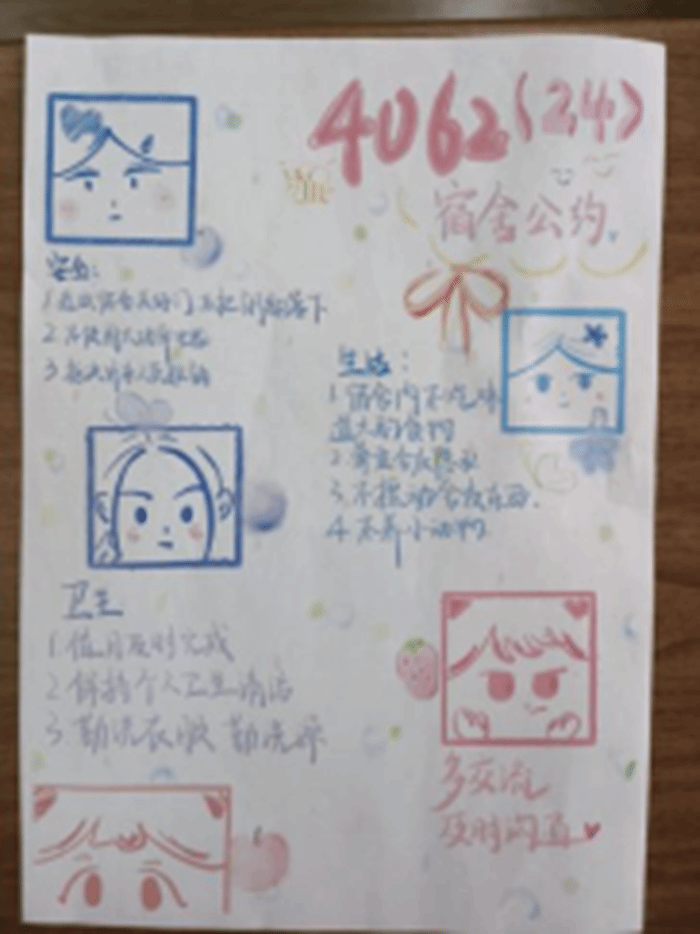 4062(24)
宿舍公约
安全:
2 不使用大功率电器
生活:
1.宿舍内不吃味
道大的食物
2.尊重舍友隐私
3.不摆动舍友东西.
4.不养小动物
卫生
1.值日及时完成
2.保持个人卫生清洁
3.勤洗衣服 勤洗澡
多交流
及时沟通